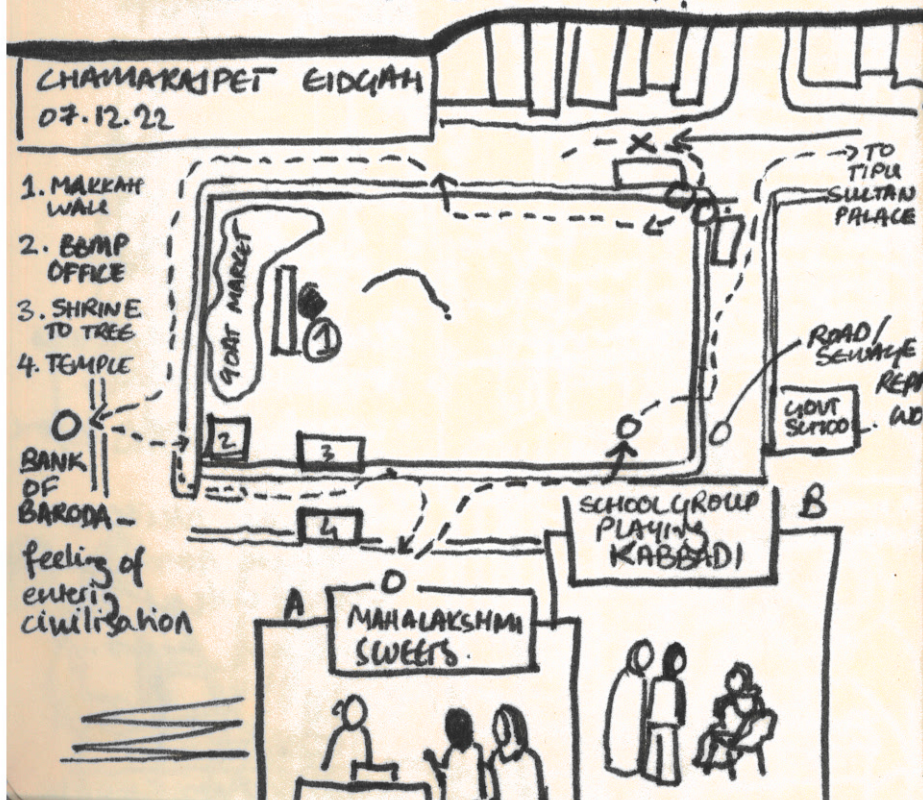 CHAMARAJPET EIDGAH
07.12.22
1. MAKKAH
WALL
2. BBMP
OFFICE
3. SHRINE
TO TREE
4. TEMPLE
BANK
OF
BARODA –
feeling of
enterig
civilisation
GOAT MARKET
1
2
3
4
TO
TIPU
SULTAN
PALACE
ROAD/
SEWAGE
GOVT
SCHOOL
SCHOOL GROUP
PLAYING
KABBADI
B
A
MAHALAKSHMI
SWEETS.